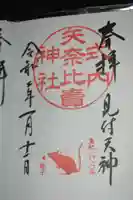 奉拝
見付天神
式内
矢奈比賣
神社
令和二年一月十二日
奉拝